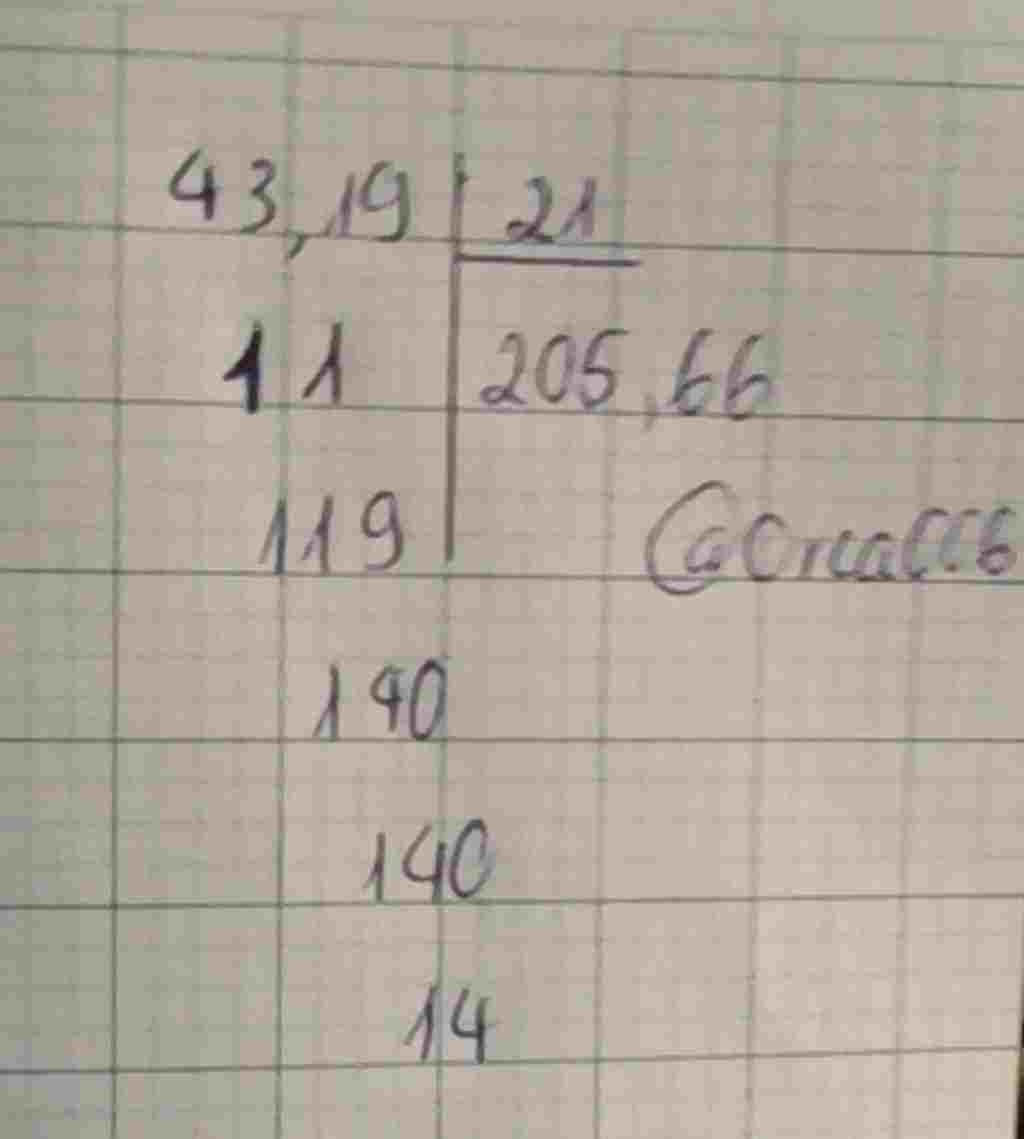 43,19 21
11 205,66
119
140
140
14